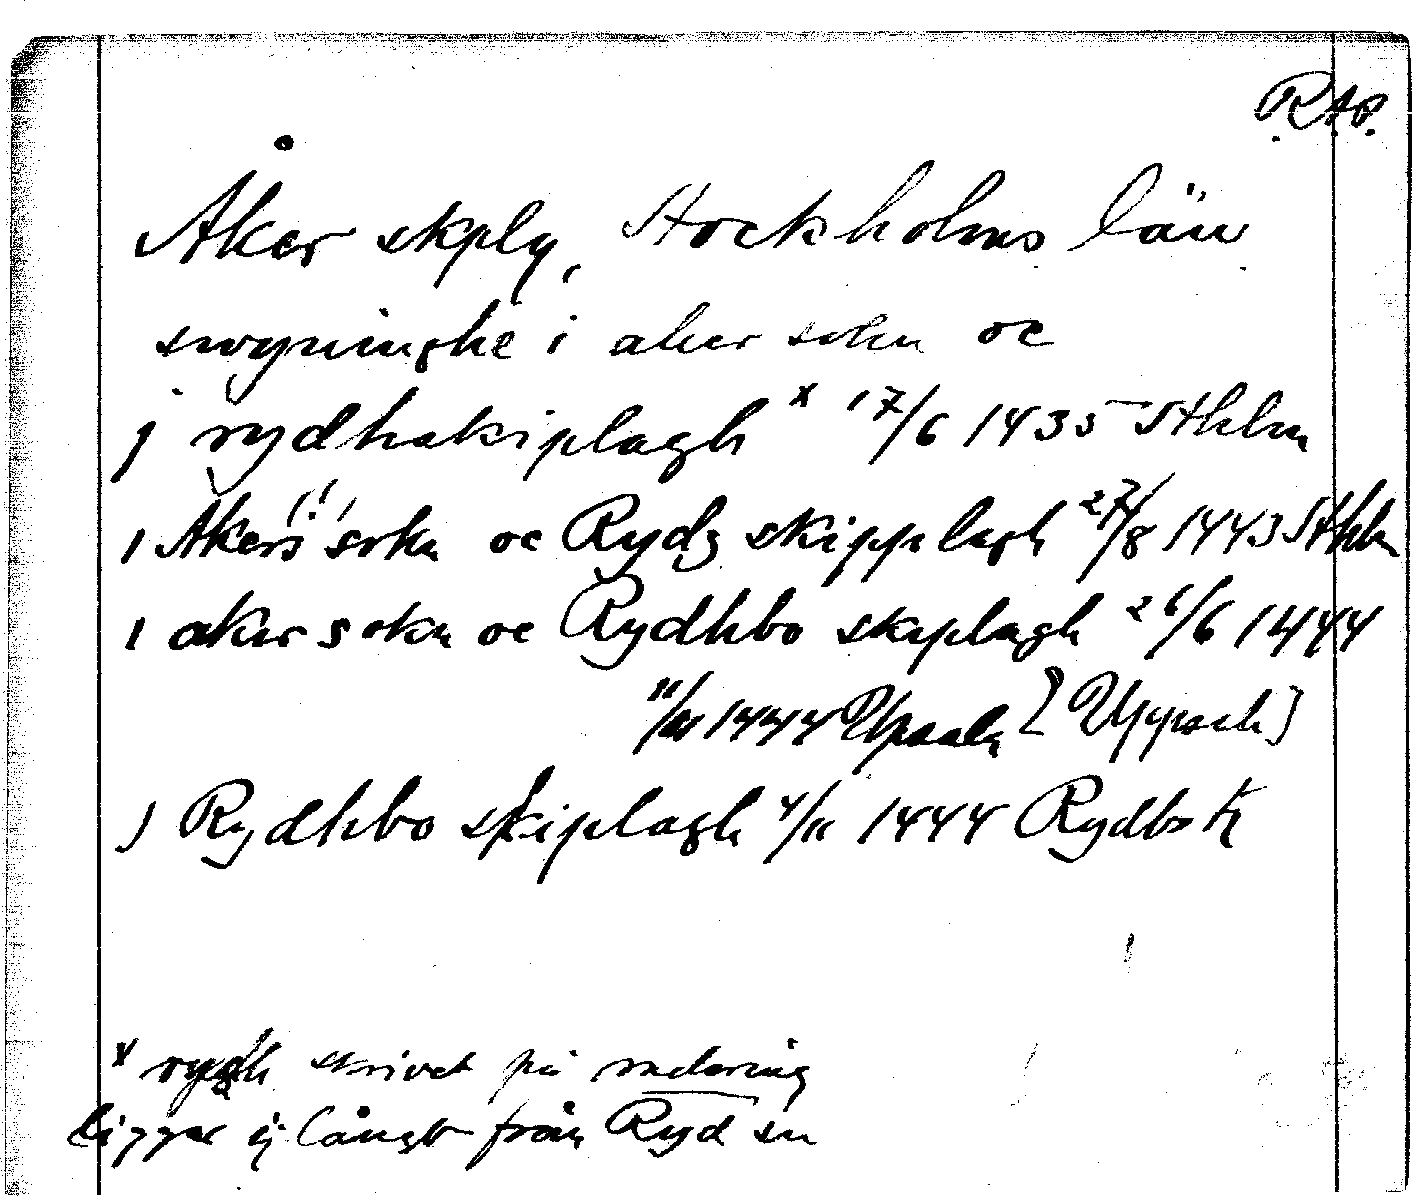 R.A.P.
Åker skplg, Stockholms län
swyninghe i aker sokn oc
j rydhaskiplagh x 17/6 1435 Sthlm
I Åkers (!) sokn oc Rydz skipplagh 27/8 1443 Sthlm
I aker sokn oc Rydhbo skiplagh 26/6 1444
11/11 1444 Upsala [Uppsala]
J Rydhbo skiplagh 4/11 1444 Rydbok
x rydh skrivet på radering
ligger ej långt från Ryd sn